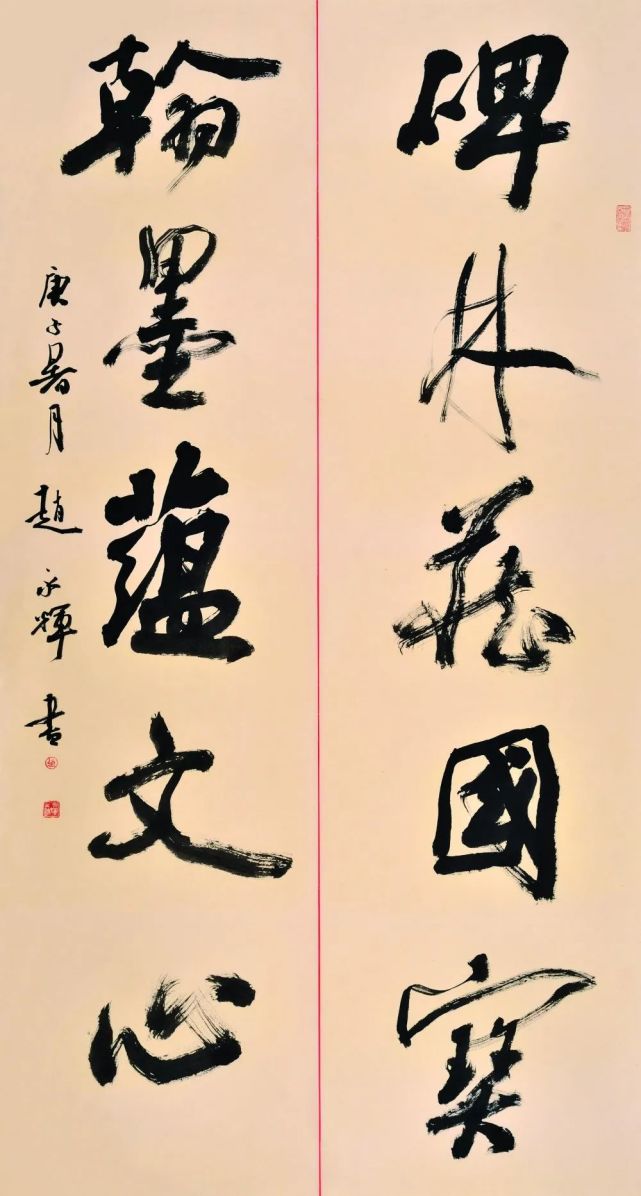 碑林藏國寶
翰墨蘊文心
庚子暑月 趙永輝 書